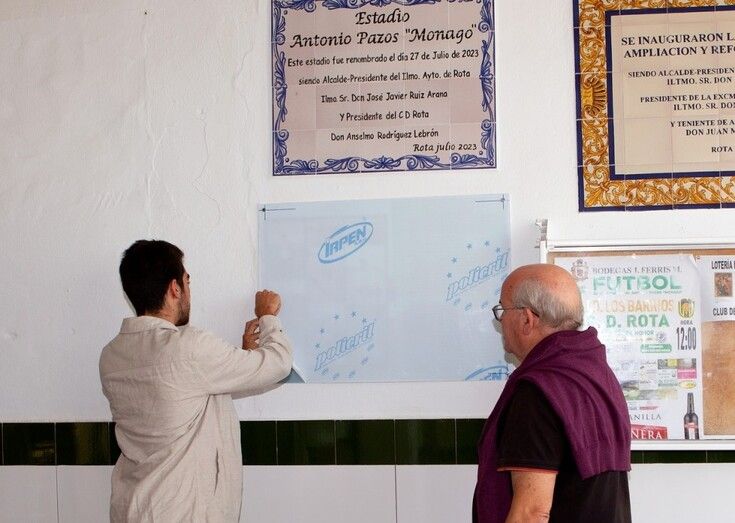 Estadio
Antonio Pazos "Monago"
Este estadio fue renombrado el día 27 de Julio de 2023
siendo Alcalde-Presidente del Ilmo. Ayto. de Rota
Ilmo. Sr. Don José Javier Ruiz Arana
Y Presidente del C D Rota
Don Anselmo Rodríguez Lebrón
Rota julio 2023
SE INAUGURARON L
AMPLIACION Y REF
SIENDO ALCALDE-PRESIDEN
ILTMO. SR. DO
PRESIDENTE DE LA EXCM
ILTMO. SR. DON
Y TENIENTE DE A
DON JUAN M
ROTA
IRPEN
policril
policril
BODEGAS J. FERRIS M.
FUTBOL
D. LOS BARRIOS
D. ROTA
12:00
ANILLA
NERA
LOTERÍA
CLUB DE